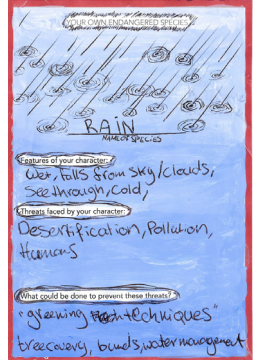 YOUR OWN ENDANGERED SPECIES
RAIN
NAME OF SPECIES
Features of your character:
Wet, falls from sky/clouds,
See through, cold,
Threats faced by your character:
Desertification, Pollution,
Humans
What could be done to prevent these threats?
"greening techniques"
treecovery, bunds, water management